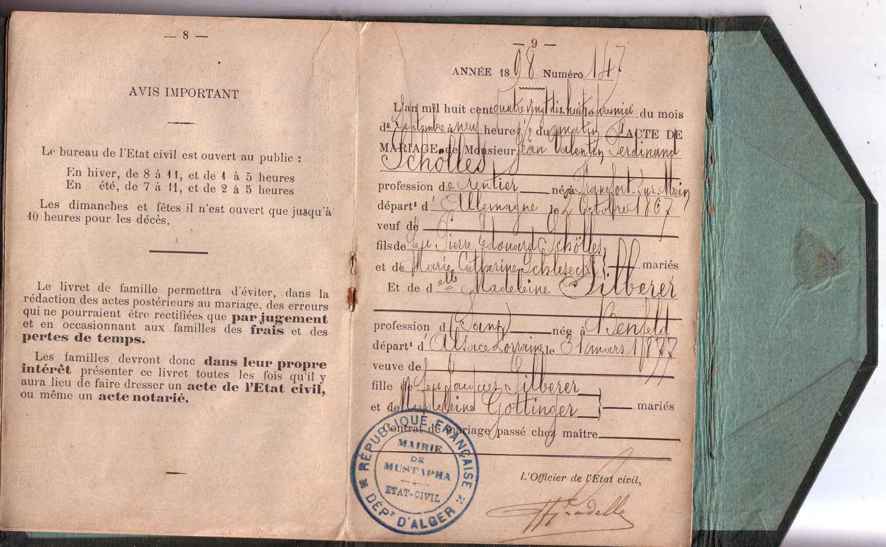 — 8 —
AVIS IMPORTANT
Le bureau de l'Etat civil est ouvert au public :
En hiver, de 8 à 11, et de 1 à 5 heures
En été, de 7 à 11, et de 2 à 5 heures
Les dimanches et fêtes il n'est ouvert que jusqu'à
10 heures pour les décès.
Le livret de famille permettra d'éviter, dans la
rédaction des actes postérieurs au mariage, des erreurs
qui ne pourraient être rectifiées que par jugement
et en occasionnant aux familles des frais et des
pertes de temps.
Les familles devront donc dans leur propre
intérêt présenter ce livret toutes les fois qu'il y
aura lieu de faire dresser un acte de l'Etat civil,
ou même un acte notarié.
— 9 —
ANNÉE 1898 Numéro 147
L'an mil huit cent quatre vingt dix huit le premier du mois
de Septembre à neuf heures du matin L'ACTE DE
MARIAGE de Monsieur Jean Valentin Ferdinand
Schölles
profession de Rentier né à Francfort sur Mein
départt d'Allemagne le 2 Octobre 1867
veuf de
fils de Pierre Edouard Schölles
et de Marie Catharine mariés
Et de delle Madeleine Silberer
profession d Sans née à Benfeld
départt d'Alsace Lorraine le 31 1877
veuve de
fille de Jacques Silberer
et de Madeleine Gottinger mariés
Contrat de mariage passé chez maître
L'Officier de l'Etat civil,
RÉPUBLIQUE FRANÇAISE
MAIRIE
DE
MUSTAPHA
ETAT-CIVIL
DÉPT D'ALGER